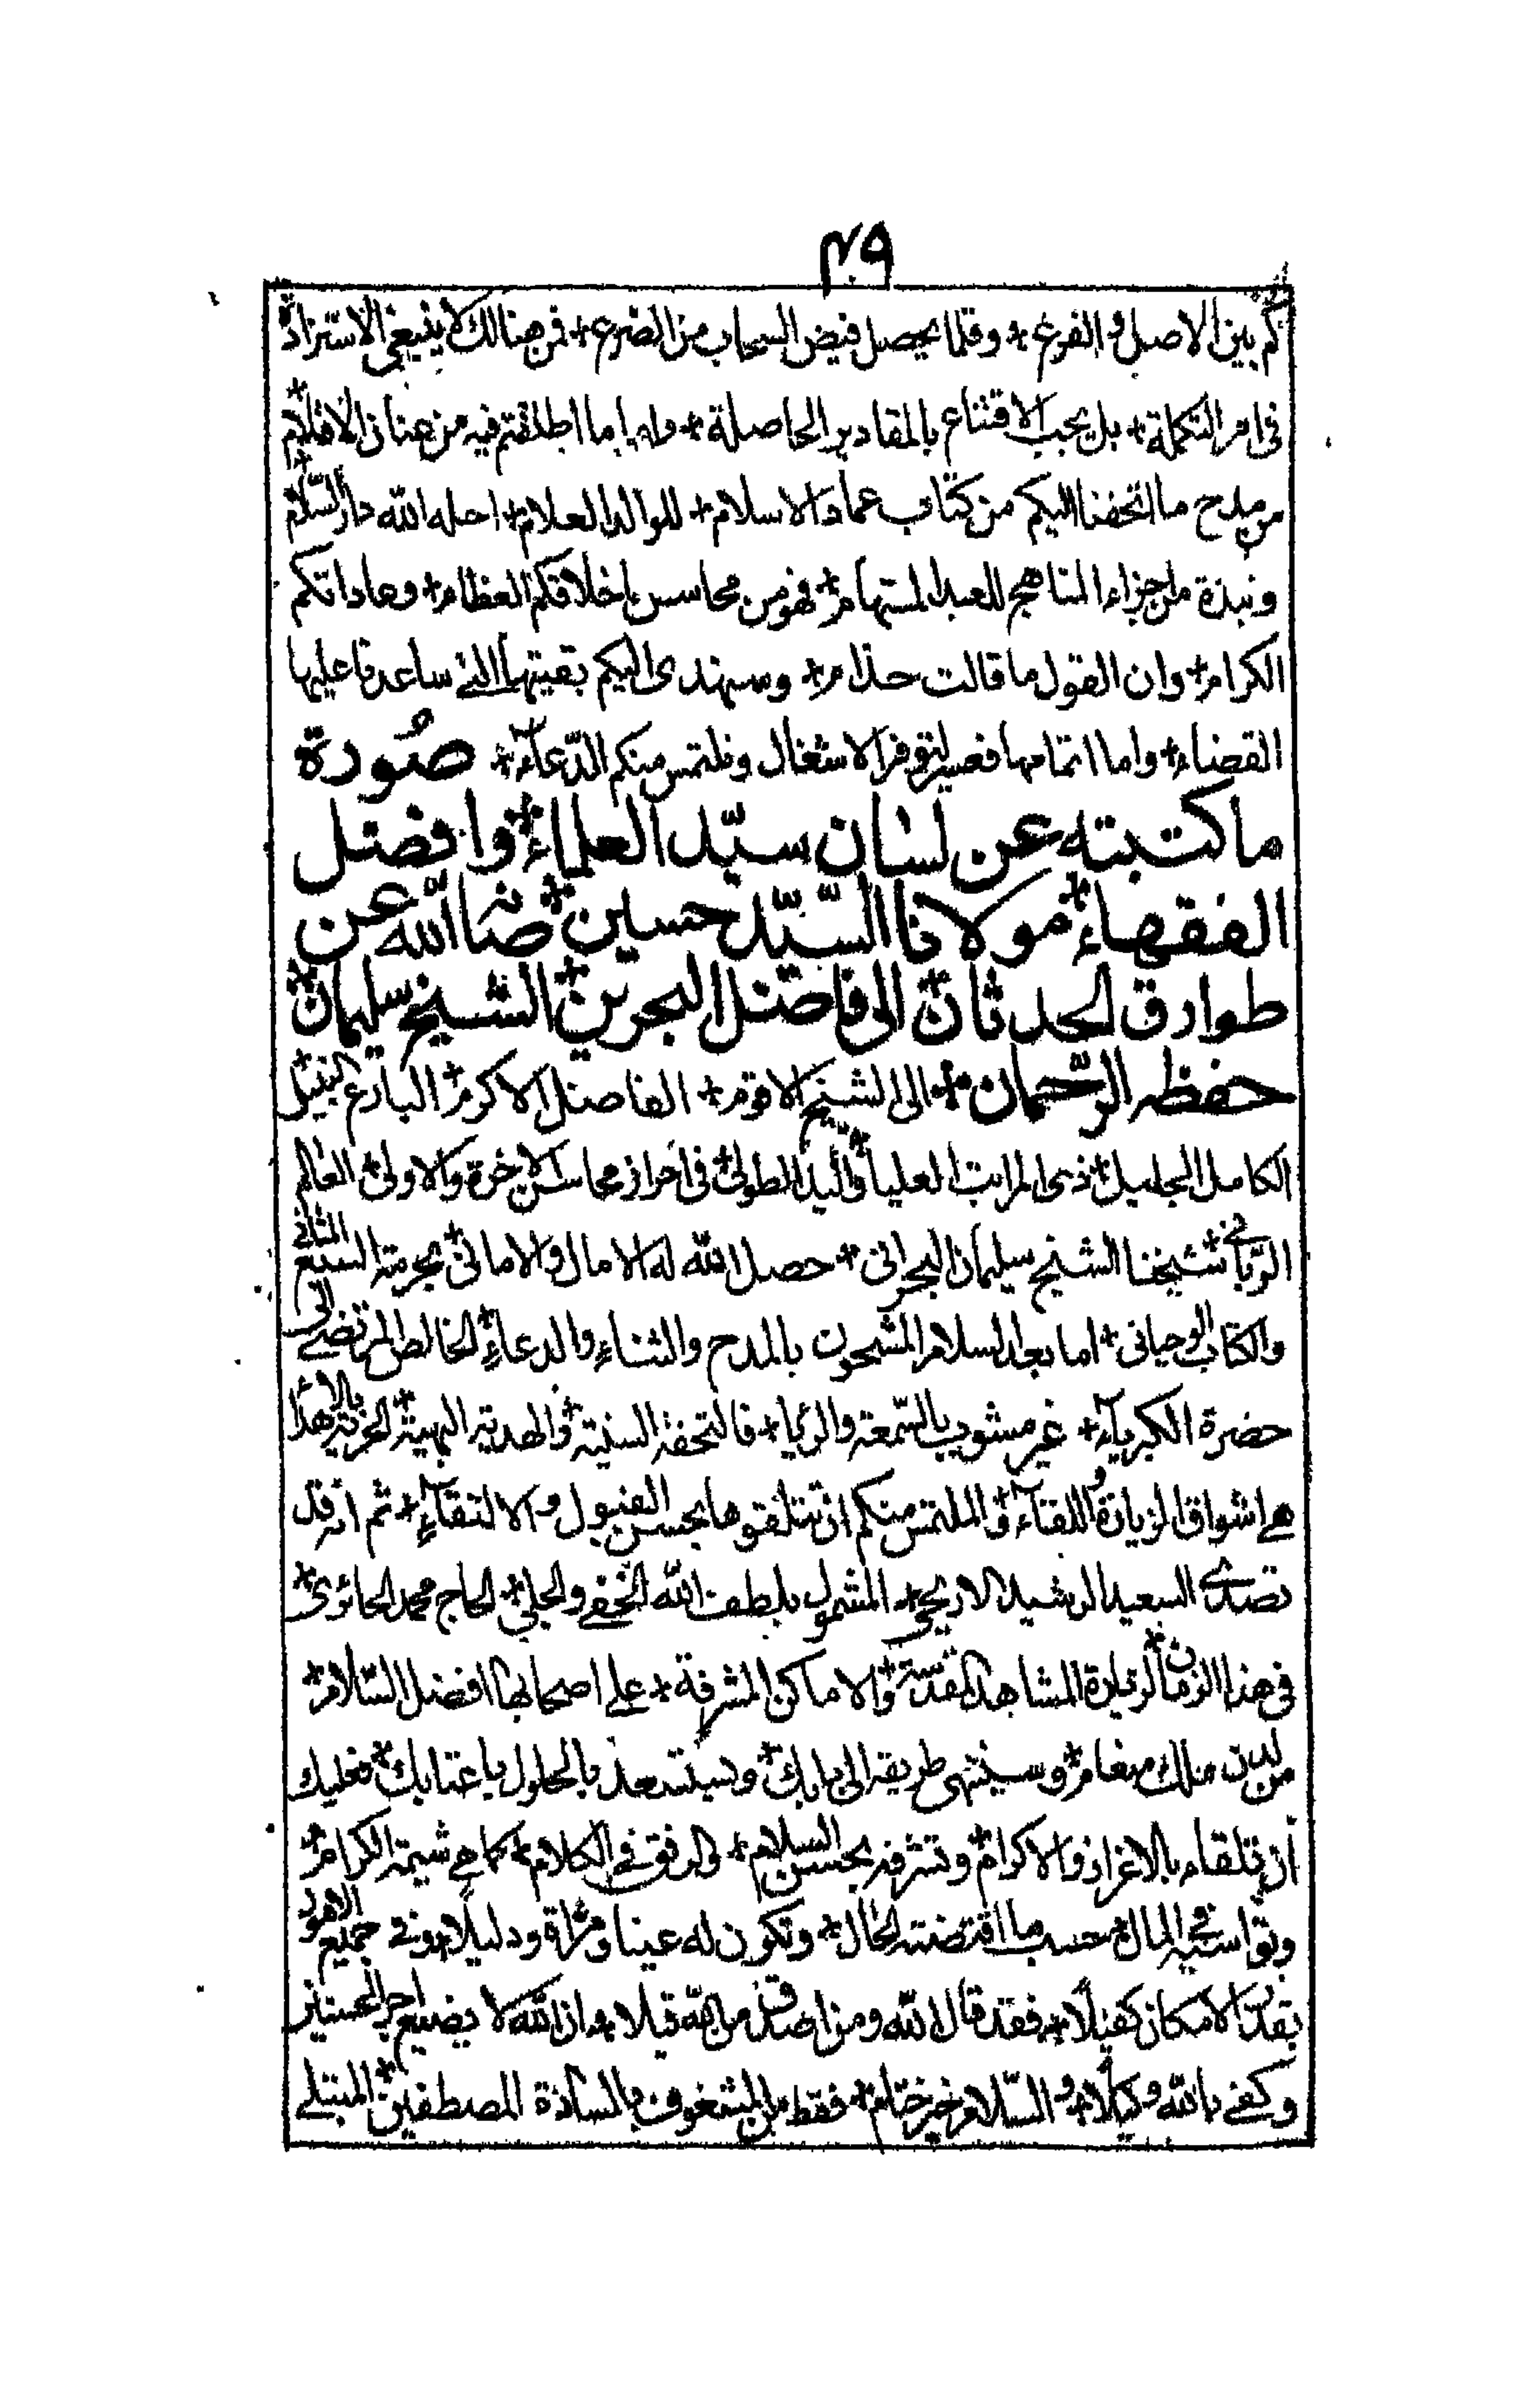 ٤٩
كم بين الاصل والفرع + وقلما يحصل فيض السحاب من الضرع + فمن هنالك لا ينبغي الاستزادة
فى امر التكملة + بل يجب الاقتناع بالمقادير الحاصلة + واما ما اطلقتم فيه من عنان الاقلام +
من مدح ما اتحفنا اليكم من كتاب عماد الاسلام + للوالد العلام + احله الله دار السلام +
ونبذة من اجزاء المناهج للعبد المستهام + فهو من محاسن اخلاقكم العظام + وعاداتكم
الكرام + وان القول ما قالت حذام + وسنهدى اليكم بقيتها التي ساعدنا عليها
القضاء + واما اتمامها فعسير لتوفر الاشغال ونلتمس منكم الدّعاء + صُورة
ما كتبته عن لسان سيّد العلماء + وافضل
الفقهاء + مولانا السّيّد حسين + صانه الله عن
طوارق الحدثان + الى فاضل البحرين + الشيخ سليمان +
حفظه الرّحمان + الى الشيخ الاقوم + الفاضل الاكرم + البارع النبيل +
الكامل الجليل + ذى المراتب العليا + واليد الطولى + فى احراز محاسن الاخرة والاولى + العالم
الرّبّاني + شيخنا الشيخ سليمان البحرانى + حصل الله له الامال والامانى + بحرمة السبع المثاني
والكتاب الوحيانى + اما بعد السلام المشحون بالمدح والثناء والدعاء + الخالص المرتضى الى
حضرة الكبرياء + غير مشوب بالسّمعة والرياء + فالتحفة السنية + والهدية البهية + الحرية بالاهداء
هي اشواق الزيارة واللقاء + والملتمس منكم ان تتلقوها بحسن القبول والالتقاء + ثم انه قد
تصدى السعيد الرشيد الاريحي + المشمول بلطف الله الخفي والجلي + الحاج محمد الحائرى +
فى هذا الزمان + لزيارة المشاهد المقدسة + والاماكن المشرفة + على اصحابها افضل السّلام +
من لدن ملك منعام + وسينتهى طريقه الى بابك + وسيستسعد بالحلول باعتابك + فعليك
ان تلقاه بالاعزاز والاكرام + وتشرفه بحسن السلام + والرفق في الكلام + كما هي شيمة الكرام +
وتواسيه في المال + حسب ما اقتضته الحال + وتكون له عينا ومراة ودليلا + وفي جميع الامور
بقدر الامكان كفيلا + فقد قال الله ومن اصدق من الله قيلا + وان الله لا يضيع اجر المحسنين
وكفى بالله وكيلا + والسّلام خير ختام + فقط من المشغوف بالسادة المصطفين + المبتلى